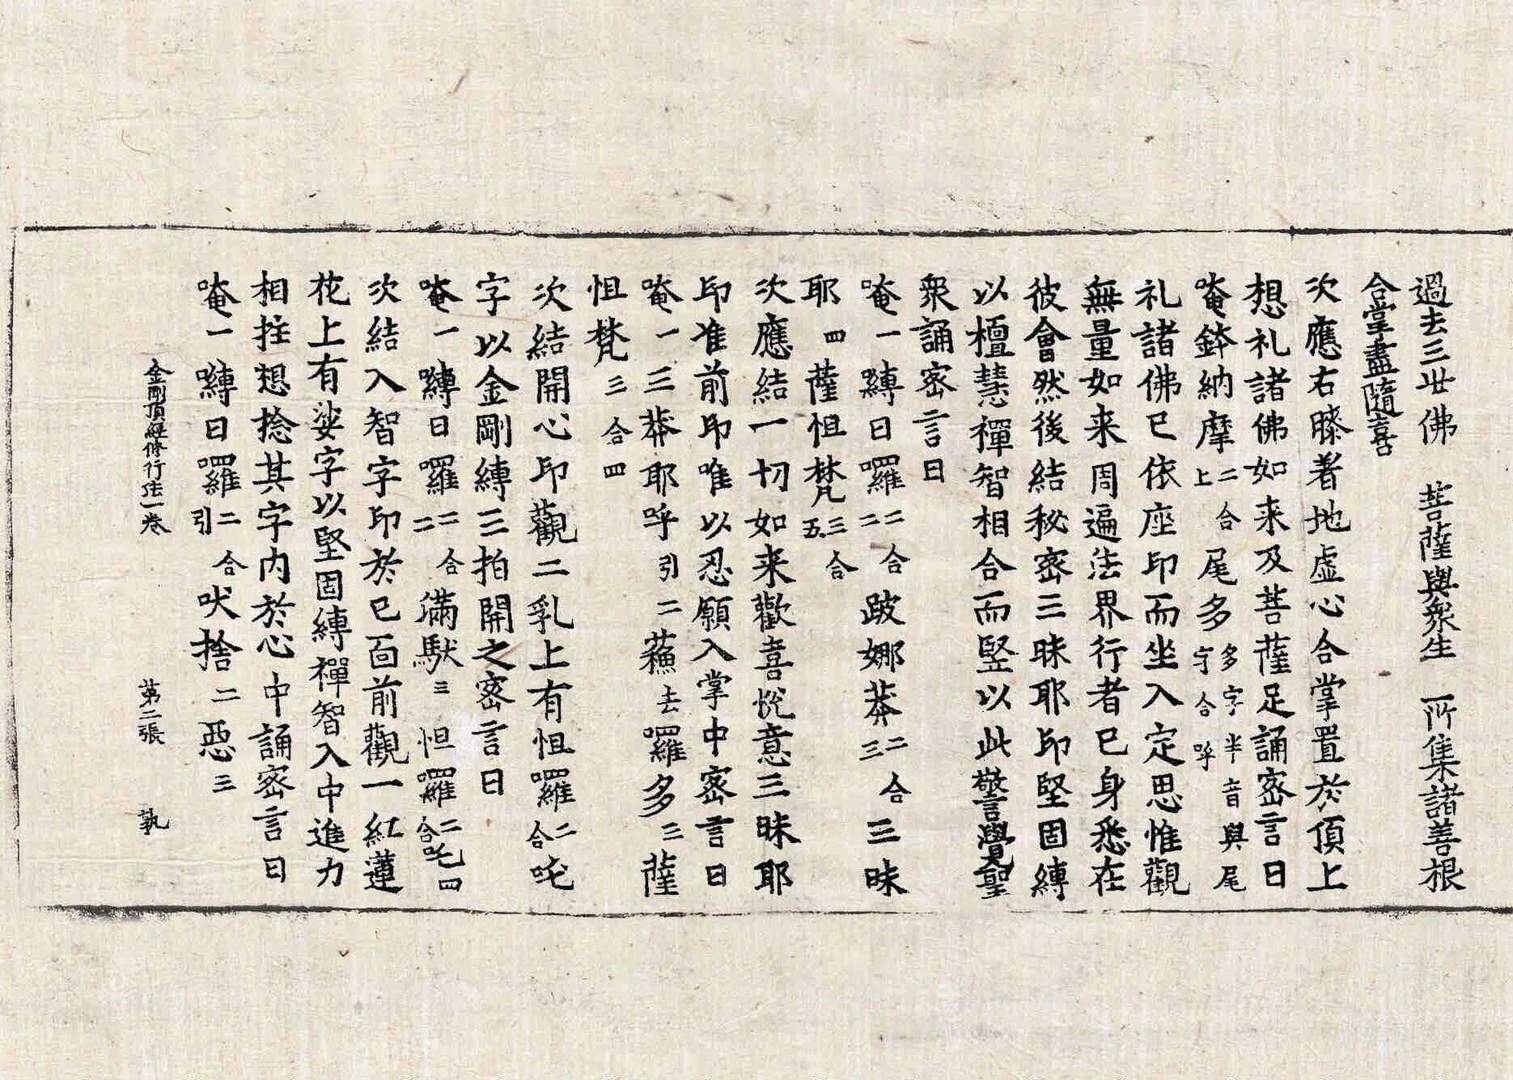 過去三世佛　菩薩與衆生　所集諸善根
合掌盡隨喜
次應右膝著地虛心合掌置於頂上
想礼諸佛如来及菩薩足誦密言曰
唵鉢納摩二合上尾多多字半音與尾字合呼
礼諸佛已依座印而坐入定思惟觀
無量如来周遍法界行者已身悉在
彼會然後結秘密三昧耶印堅固縛
以檀慧禪智相合而竪以此警覺聖
衆誦密言曰
唵一嚩日囉二合二跛娜莽二合三三昧
耶四薩怛梵三合五
次應結一切如来歡喜悅意三昧耶
印准前印唯以忍願入掌中密言曰
唵一三莽耶呼引二蘓去囉多三薩
怛梵三合四
次結開心印觀二乳上有怛囉二合吒
字以金剛縛三拍開之密言曰
唵一嚩日囉二合二滿馱三怛囉二合吒四
次結入智字印於已面前觀一紅蓮
花上有娑字以堅固縛禪智入中進力
相拄想捻其字内於心中誦密言曰
唵一嚩日囉二合引吠捨二惡三
金剛頂經修行法一卷　第二張　孰